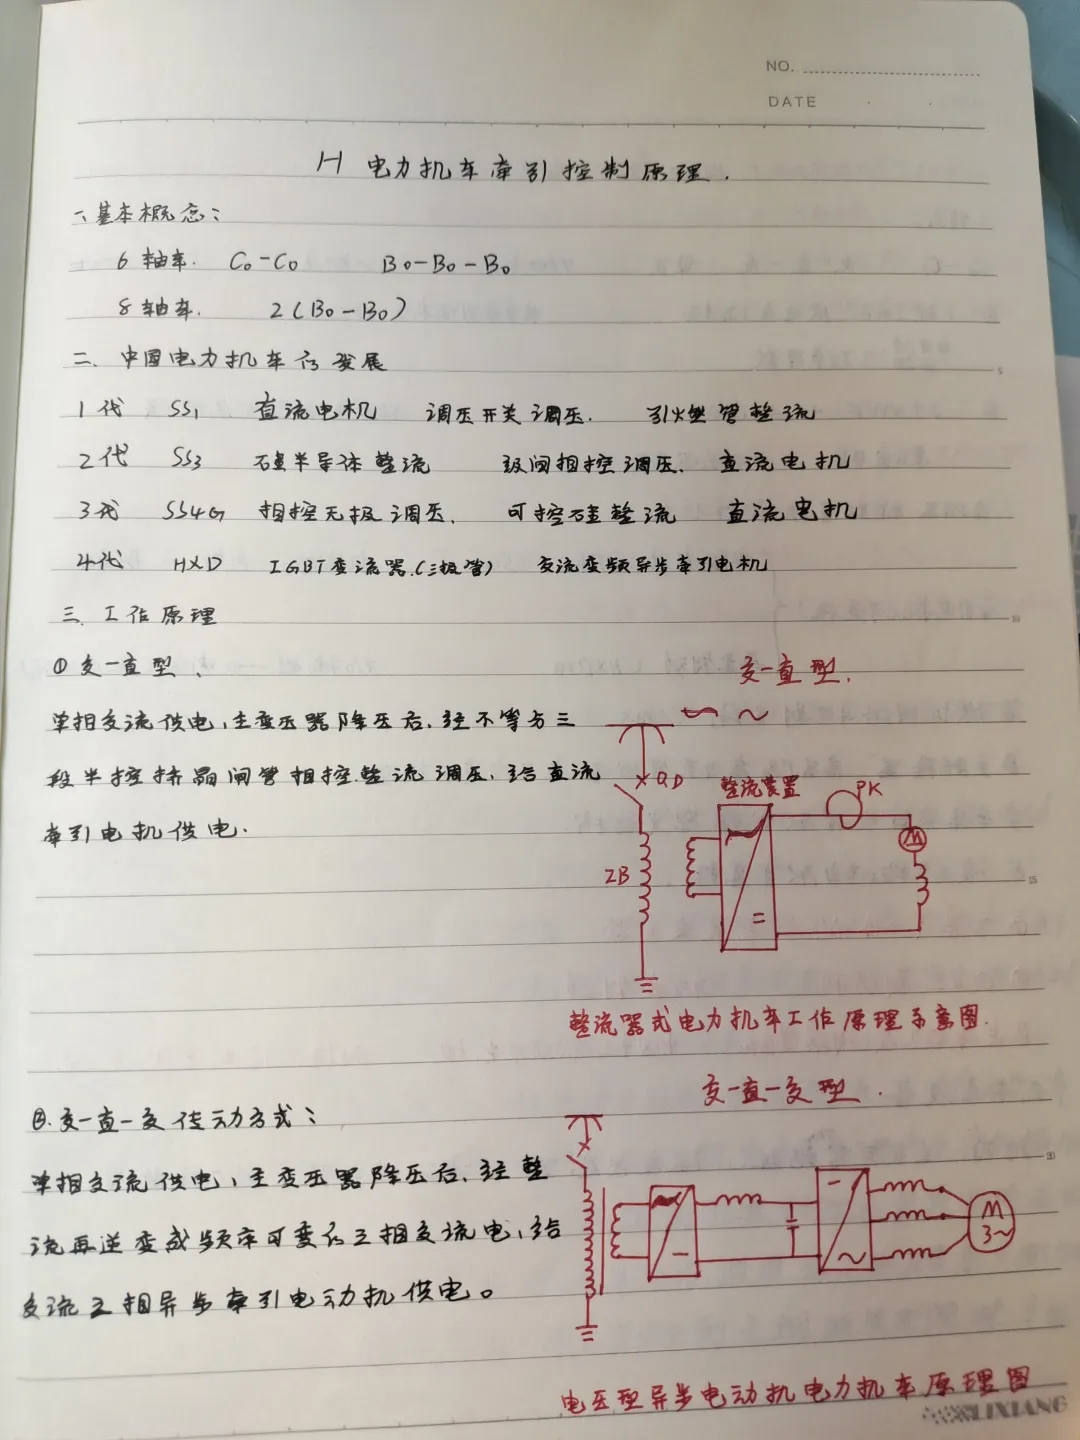 NO.
DATE
H 电力机车牵引控制原理.
一、基本概念:
6轴车. C₀-C₀ B₀-B₀-B₀
8轴车. 2(B₀-B₀)
二、中国电力机车的发展
1代 SS₁ 直流电机 调压开关调压. 引火燃管整流
2代 SS₃ 硅半导体整流 级间相控调压. 直流电机
3代 SS4G 相控无极调压. 可控硅整流 直流电机
4代 HXD IGBT变流器.(三极管) 交流变频异步牵引电机
三、工作原理
① 交一直型、
交一直型.
单相交流供电,主变压器降压后.经不等分三
段半控桥晶闸管相控整流调压.给直流
牵引电机供电.
QD
整流装置
PK
M
ZB
=
整流器式电力机车工作原理示意图.
②.交一直一交传动方式:
交一直一交型.
单相交流供电,主变压器降压后.经整
流再逆变成频率可变的三相交流电,给
交流三相异步牵引电动机供电。
M
3~
电压型异步电动机电力机车原理图
LIXIANG